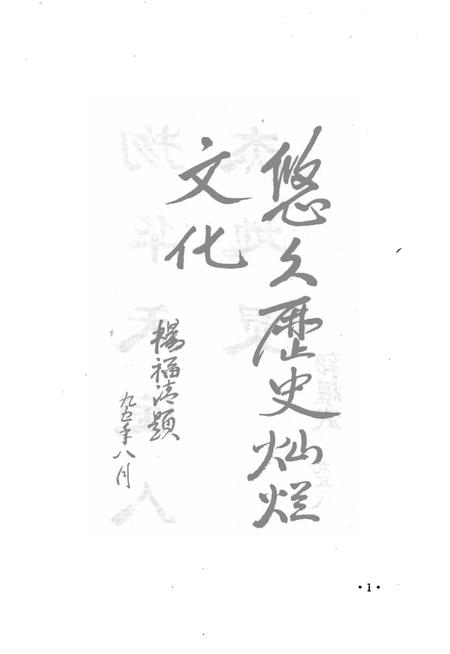 悠久歷史灿烂
文化
楊福清題
九五年八月
·1·